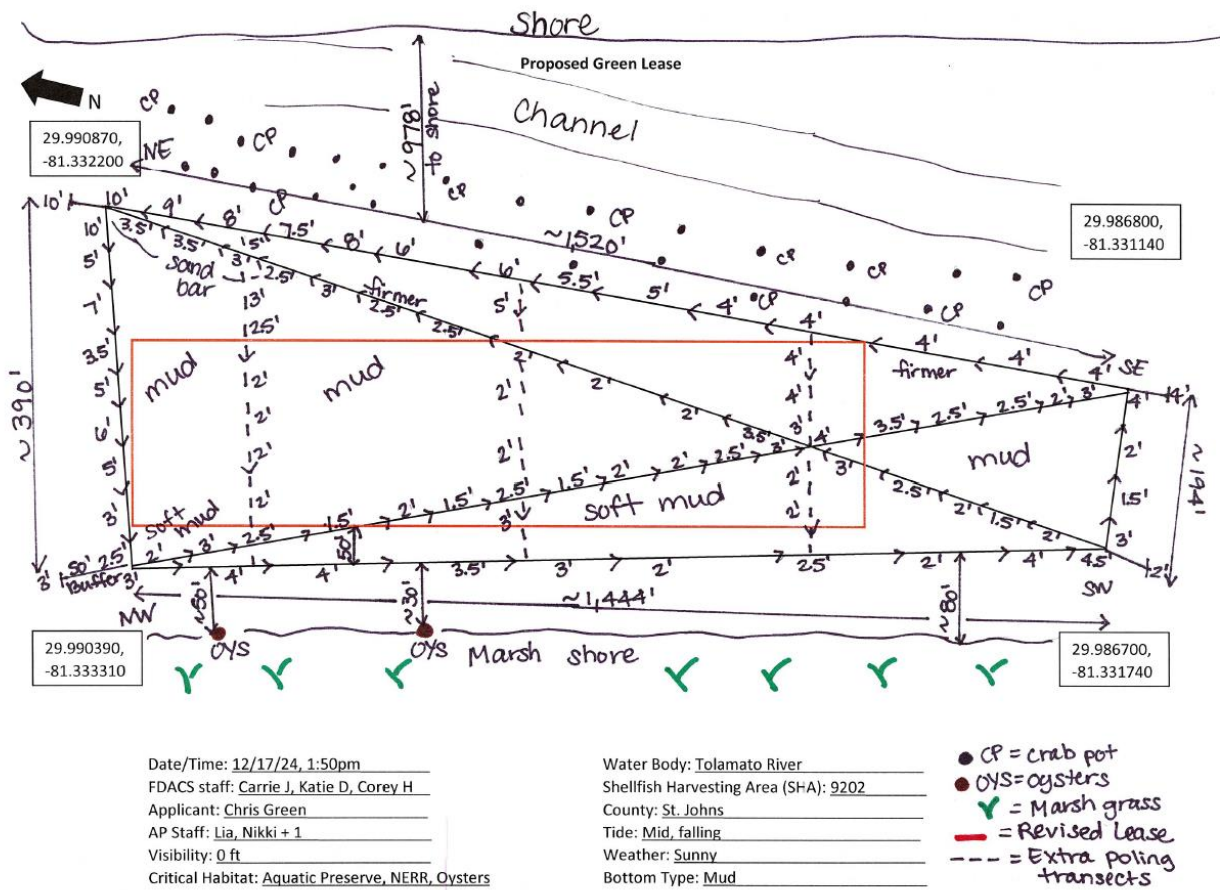 Shore
Proposed Green Lease
N
Channel
CP
CP
~978'
to shore
29.990870,
-81.332200
NE
CP
CP
CP
29.986800,
-81.331140
~1,520'
CP
CP
CP
CP
CP
10' 10' 9' 8' 7.5' 8' 6' 6' 5.5' 5' 4' 4' 4' 4' 4' SE
10' 3.5' 3.5' 3' 2.5' 3' 2.5' 2.5' 2' 2' 2' 3.5' 4' 3' 2.5' 2' 1.5' 3' 2'
sand
bar
firmer
firmer
5' 7' 3.5' 5' 6' 5' 3' 2.5'
2' 2' 2' 2'
5' 2' 2' 2' 3'
4' 4' 3' 2' 2'
~390'
mud
mud
mud
soft mud
soft
mud
2' 3' 2.5' 1.5' 2' 1.5' 2.5' 1.5' 2' 2' 2.5' 3' 3.5' 2.5' 2.5' 2' 3' 4' 4'
2' 1.5'
~194'
3' 50'
Buffer
50'
3' 4' 4' 3.5' 3' 2' 2.5' 2' 4' 4.5'
NW
SW
~80'
~30'
~1,444'
~80'
OYS
OYS
Marsh shore
29.990390,
-81.333310
29.986700,
-81.331740
Date/Time: 12/17/24, 1:50pm
FDACS staff: Carrie J, Katie D, Corey H
Applicant: Chris Green
AP Staff: Lia, Nikki + 1
Visibility: 0 ft
Critical Habitat: Aquatic Preserve, NERR, Oysters
Water Body: Tolamato River
Shellfish Harvesting Area (SHA): 9202
County: St. Johns
Tide: Mid, falling
Weather: Sunny
Bottom Type: Mud
CP = crab pot
OYS = oysters
= Marsh grass
= Revised Lease
= Extra poling
transects